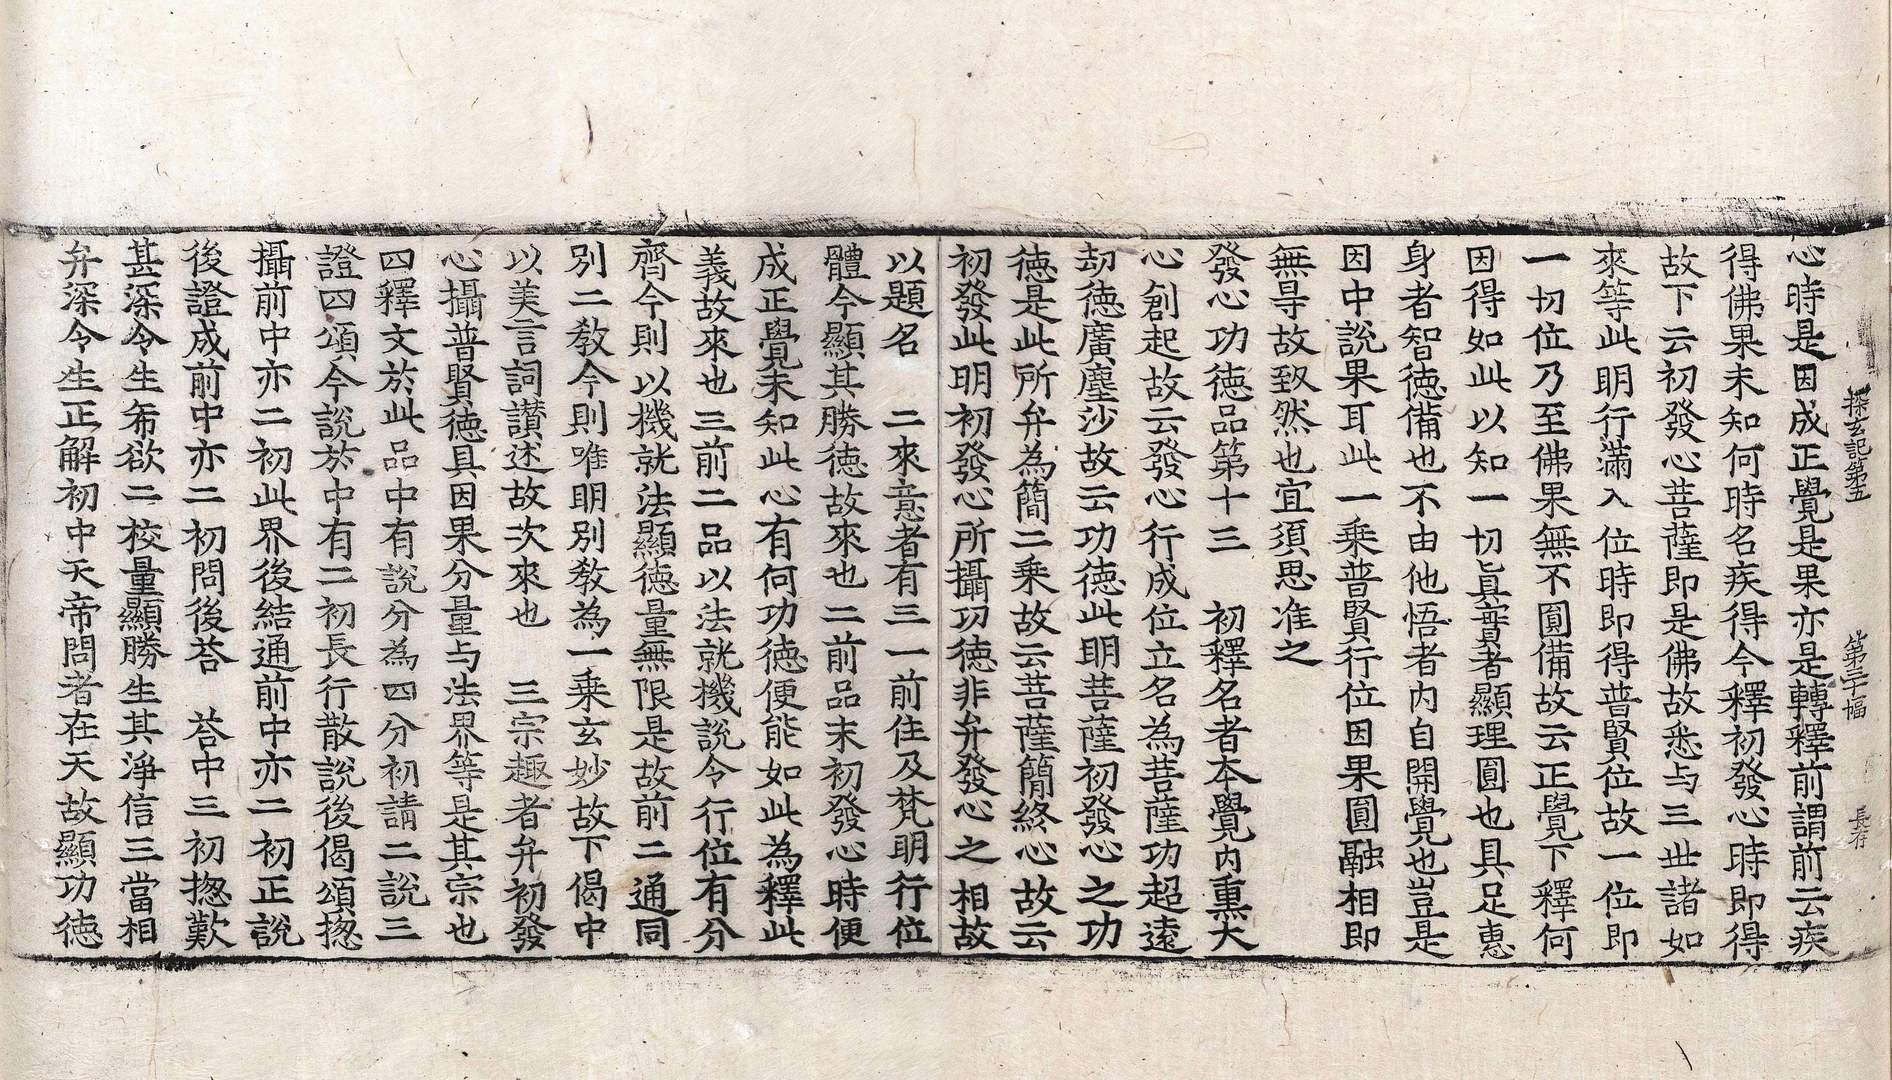 探玄記第五 第二十幅 長存
心時是因成正覺是果亦是轉釋前謂前云疾
得佛果未知何時名疾得今釋初發心時即得
故下云初發心菩薩即是佛故悉与三世諸如
來等此明行滿入位時即得普賢位故一位即
一切位乃至佛果無不圓備故云正覺下釋何
因得如此以知一切眞實者顯理圓也具足惠
身者智德備也不由他悟者內自開覺也豈是
因中說果耳此一乘普賢行位因果圓融相即
無㝵故致然也宜須思准之
發心功德品第十三 初釋名者本覺內熏大
心創起故云發心行成位立名為菩薩功超遠
劫德廣塵沙故云功德此明菩薩初發心之功
德是此所弁為簡二乘故云菩薩簡終心故云
初發此明初發心所攝功德非弁發心之相故
以題名 二來意者有三一前住及梵明行位
體今顯其勝德故來也二前品末初發心時便
成正覺未知此心有何功德便能如此為釋此
義故來也三前二品以法就機說令行位有分
齊今則以機就法顯德量無限是故前二通同
別二教今則唯明別教為一乘玄妙故下偈中
以美言詞讃述故次來也 三宗趣者弁初發
心攝普賢德具因果分量与法界等是其宗也
四釋文於此品中有說分為四分初請二說三
證四頌今說於中有二初長行散說後偈頌揔
攝前中亦二初此界後結通前中亦二初正說
後證成前中亦二初問後荅 荅中三初揔歎
甚深令生希欲二校量顯勝生其淨信三當相
弁深令生正解初中天帝問者在天故顯功德